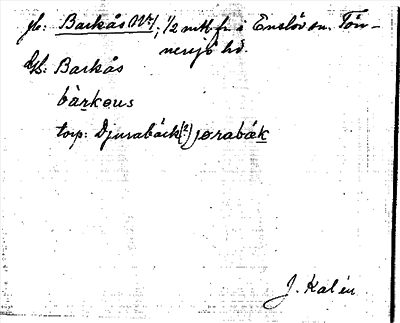 Jb: Barkås Nr 1, 1/2 mtl. fr. i Enslöv sn. Tön-
nersjö hd.
Gb: Barkås
bàrkɷus
torp: Djurabäck(?) jɷrabæk
J. Kalén